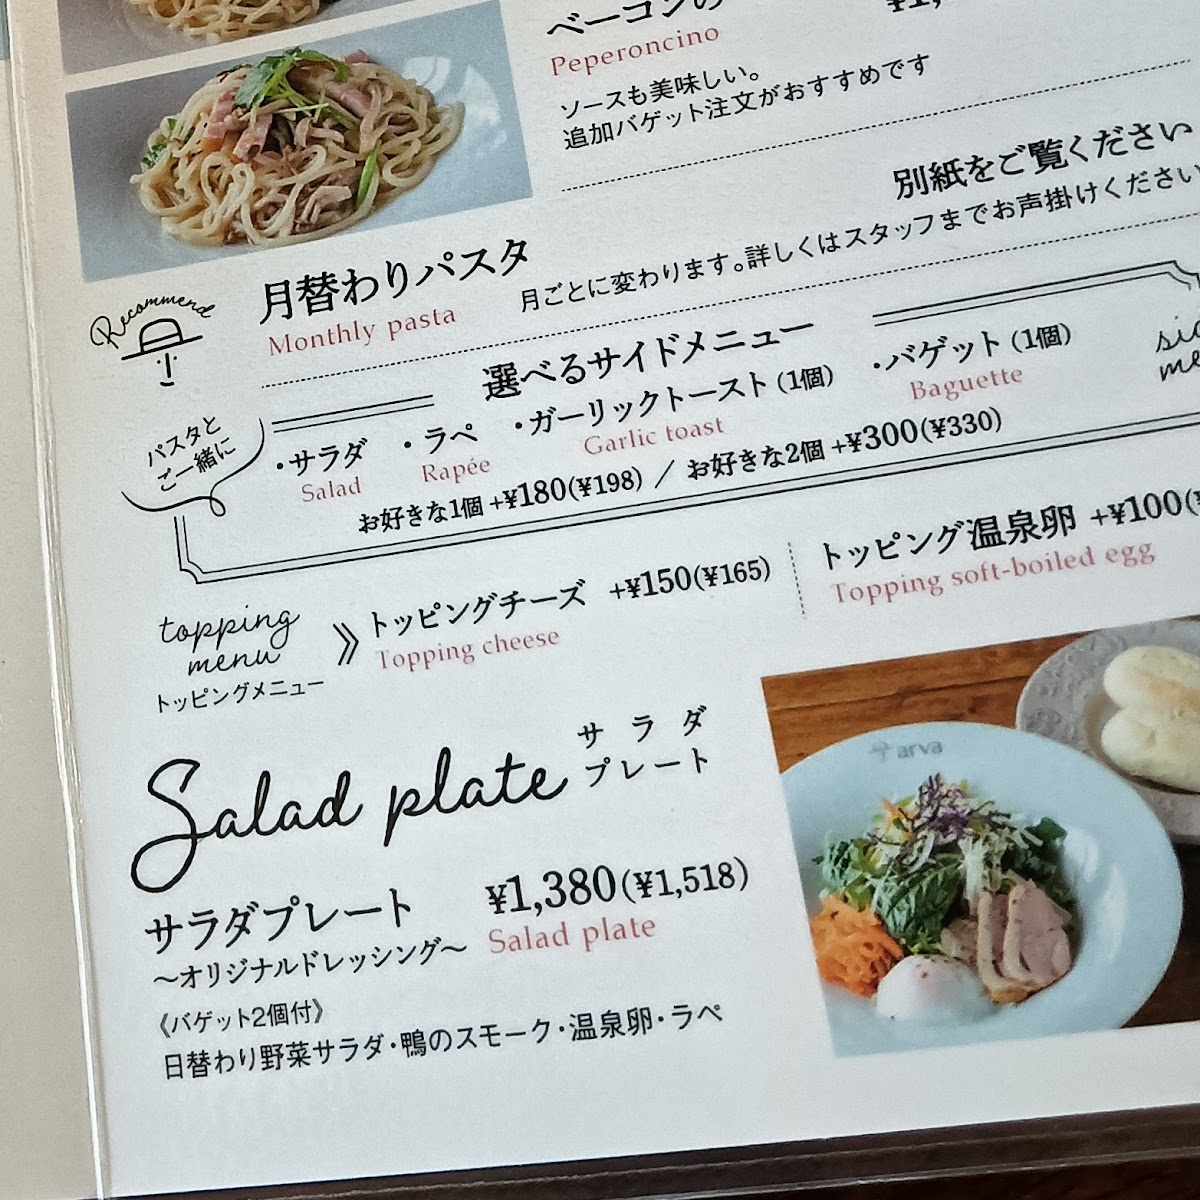 ベーコンの
Peperoncino
ソースも美味しい。
追加バゲット注文がおすすめです
Recommend
月替わりパスタ
Monthly pasta
別紙をご覧ください
月ごとに変わります。詳しくはスタッフまでお声掛けください
パスタと
ご一緒に
選べるサイドメニュー
・サラダ ・ラペ ・ガーリックトースト(1個) ・バゲット(1個)
Salad Rapée Garlic toast Baguette
お好きな1個+¥180(¥198) / お好きな2個+¥300(¥330)
topping
menu
トッピングメニュー
トッピングチーズ +¥150(¥165)
Topping cheese
トッピング温泉卵 +¥100(
Topping soft-boiled egg
Salad plate
サラダ
プレート
サラダプレート ¥1,380(¥1,518)
〜オリジナルドレッシング〜 Salad plate
《バゲット2個付》
日替わり野菜サラダ・鴨のスモーク・温泉卵・ラペ
arva